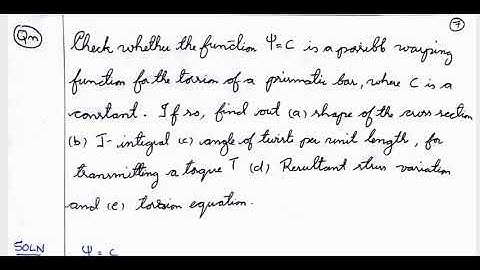 7
Qn
Check whether the function Ψ=C is a possible warping
function for the torsion of a prismatic bar, where C is a
constant. If so, find out (a) shape of the cross section
(b) J-integral (c) angle of twist per unit length, for
transmitting a torque T (d) Resultant stress variation
and (e) torsion equation.
SOLN Ψ = C